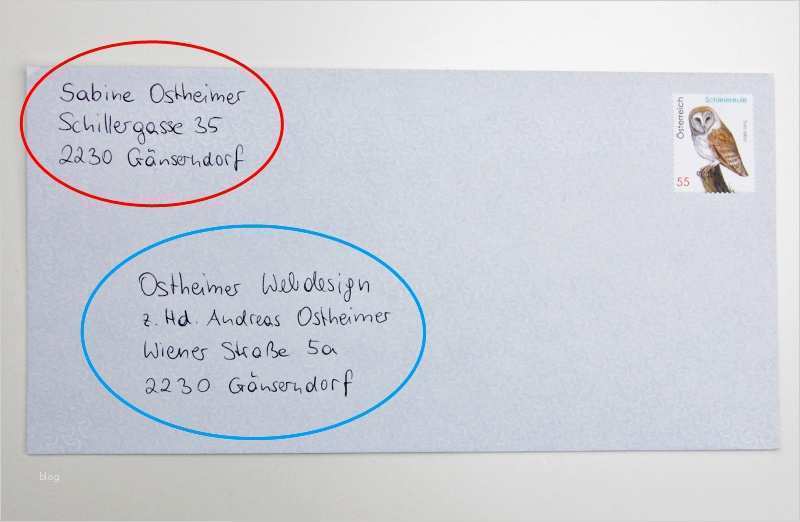 Sabine Ostheimer
Schillergasse 35
2230 Gänserndorf
Österreich
Schleiereule
55
Ostheimer Webdesign
z. Hd. Andreas Ostheimer
Wiener Straße 5a
2230 Gänserndorf
blog